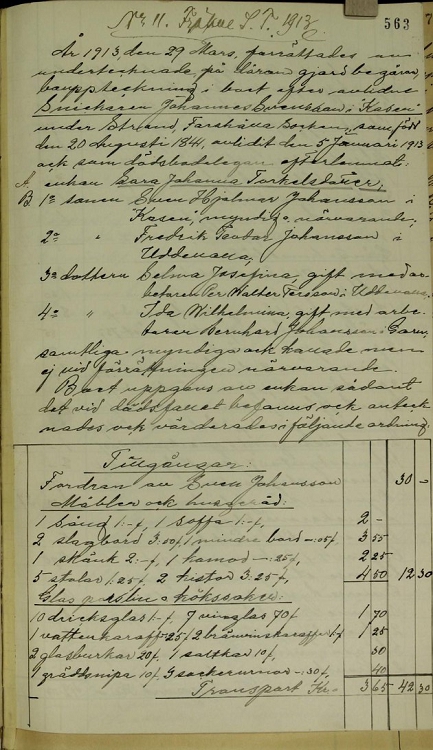 563
No 11. Fräkne S. T. 1913.
År 1913 den 29 Mars, förrättades av
undertecknade, på därom gjord begäran,
bouppteckning i boet efter avlidne
Snickaren Johannes Svensson i Kasen
under Strand, Forshälla Socken, som född
den 20 Augusti 1841, avlidit den 5 Januari 1913
och som dödsbodelegare efterlämnat:
A. enkan Sara Johanna Torkelsdotter,
B 1o sonen Sven Hjalmar Johansson i
Kasen, myndig, närvarande,
2o " Fredrik Teodor Johansson i
Uddevalla,
3o dottern Selma Josefina, gift med ar-
betaren Per Walter Persson i Uddevalla,
4o " Ida Wilhelmina, gift med arbe-
taren Bernhard Johansson i
samtliga myndiga och kallade men
ej vid förrättningen närvarande.
Boet uppgavs av enkan sådant
det vid dödsfallet befanns och anteck-
nades och värderades i följande ordning.
Tillgångar:
Fordran av Sven Johansson 30 -
Möbler och husgeråd:
1 säng 1:-, 1 soffa 1:-, 2 -
2 slagbord 3:50, 1 mindre bord -:05, 3 55
1 skänk 2:-, 1 -:25, 2 25
5 stolar 1:25, 2 kistor 3:25, 4 50 12 30
Glas porslin o kökssaker:
10 dricksglas 1:-, 7 vinglas 70 1 70
1 vattenkaraff -:25 2 brännvinskaraffer 1:- 1 25
2 glasburkar 20, 1 saltkar 10, 30
1 gräddsnipa 10, sockerurnor -:30, 40
Transport Kr. 3 65 42 30